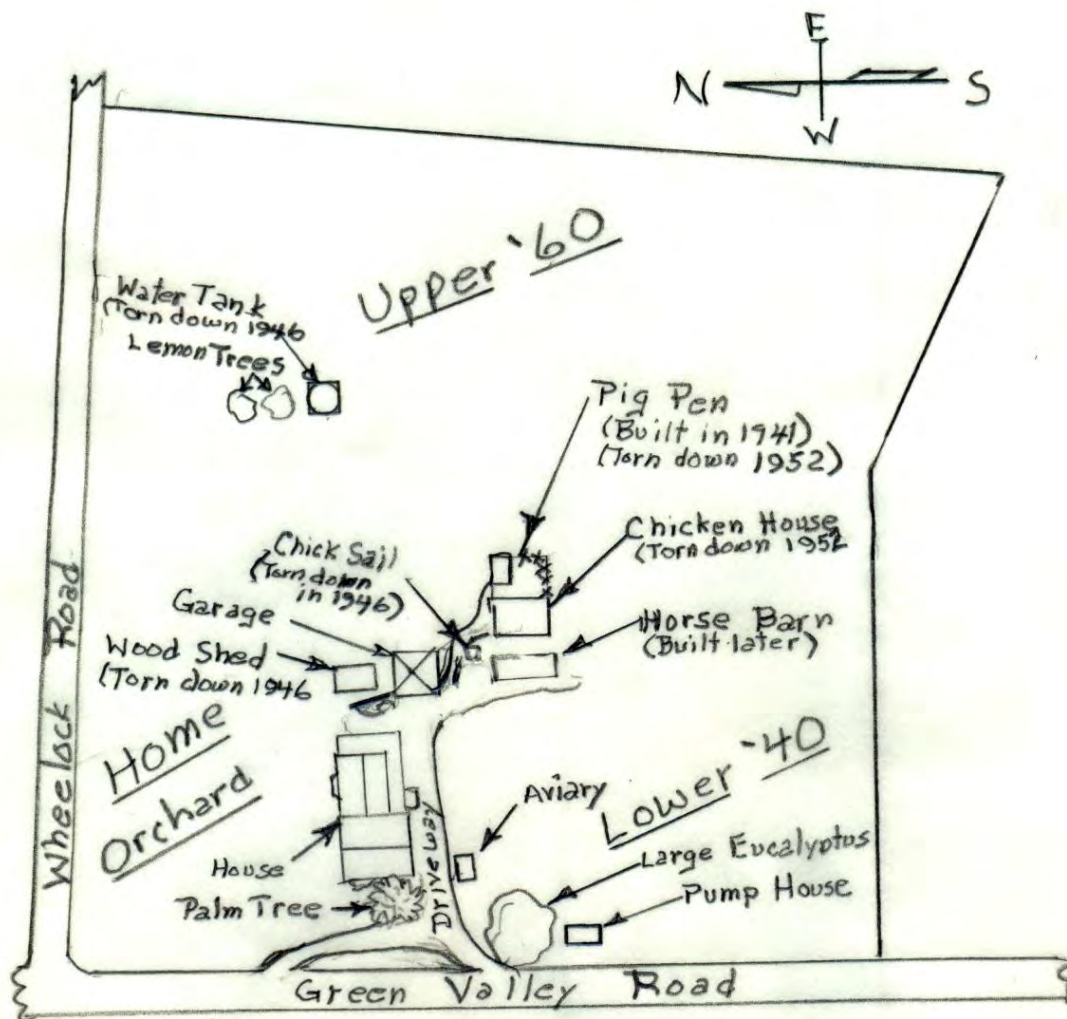 E
N
S
W
Upper '60
Water Tank
(Torn down 1946
Lemon Trees
Pig Pen
(Built in 1941)
(Torn down 1952)
Chick Sail
(Torn down
in 1946)
Chicken House
(Torn down 1952
Garage
Horse Barn
(Built later)
Wood Shed
(Torn down 1946
Wheelock Road
Home
Orchard
Lower -40
Aviary
Driveway
House
Large Eucalyptus
Palm Tree
Pump House
Green Valley Road